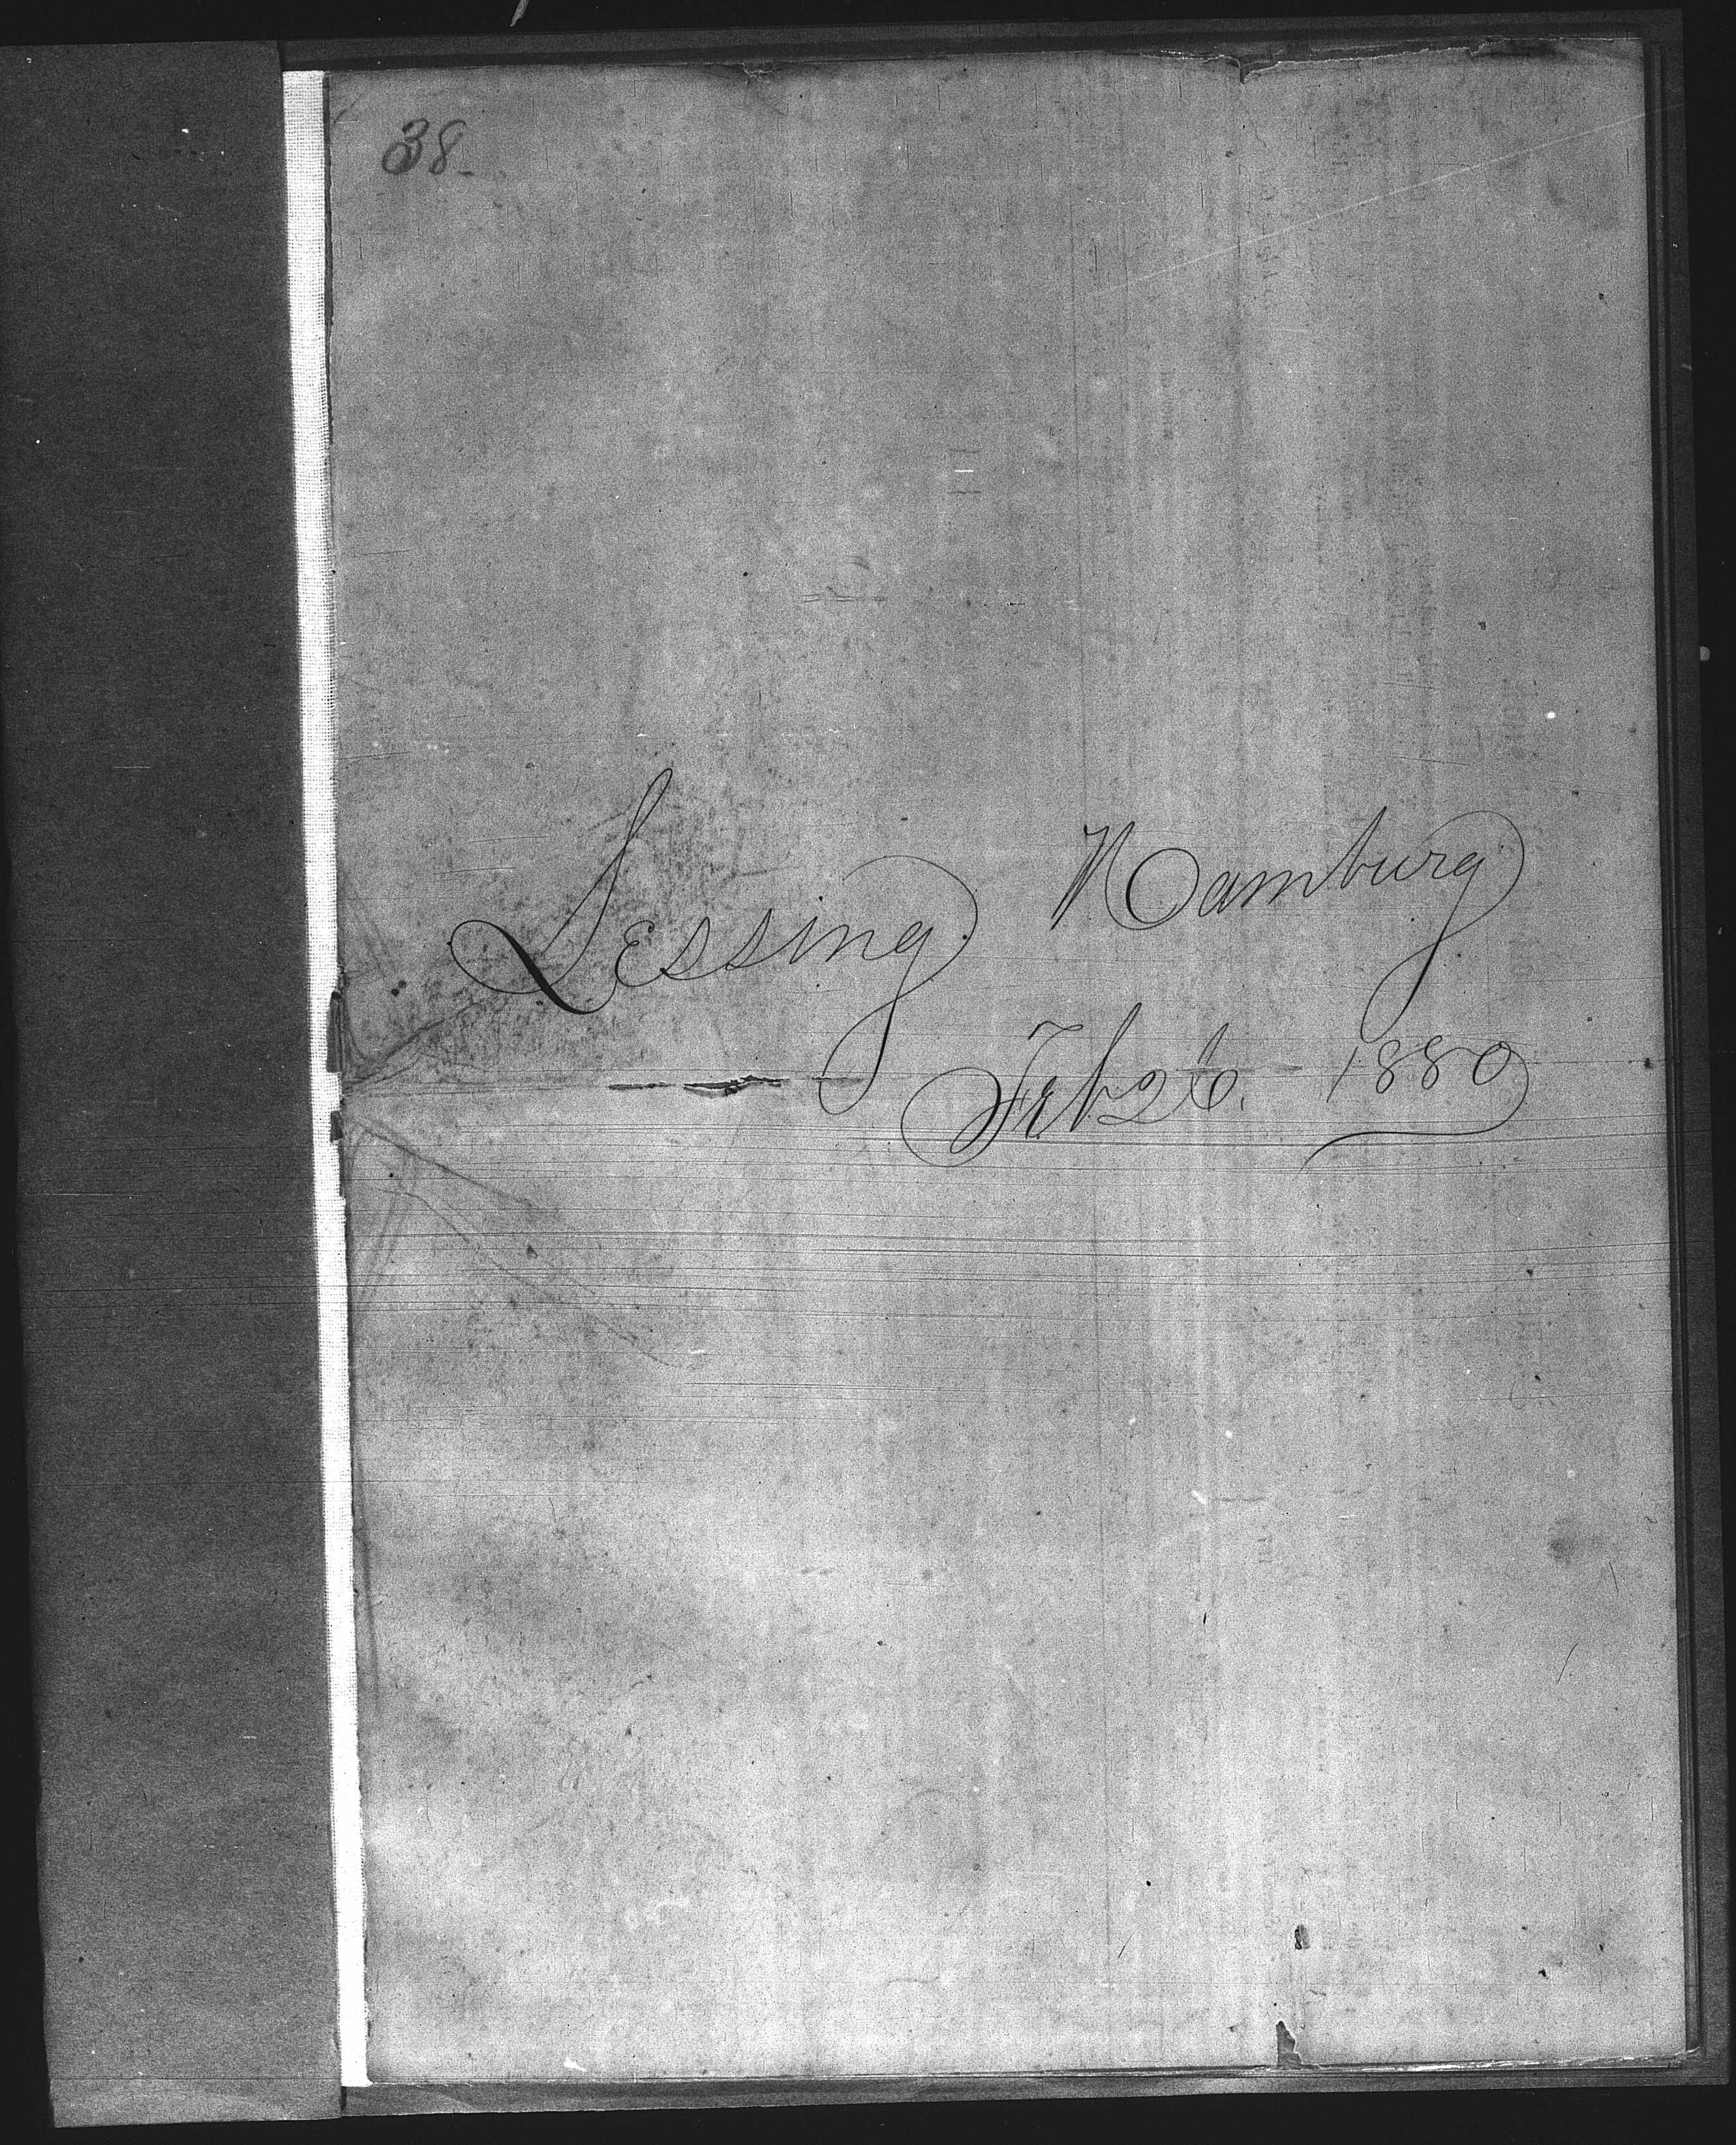 38
Lessing Hamburg
Feb 26. 1880